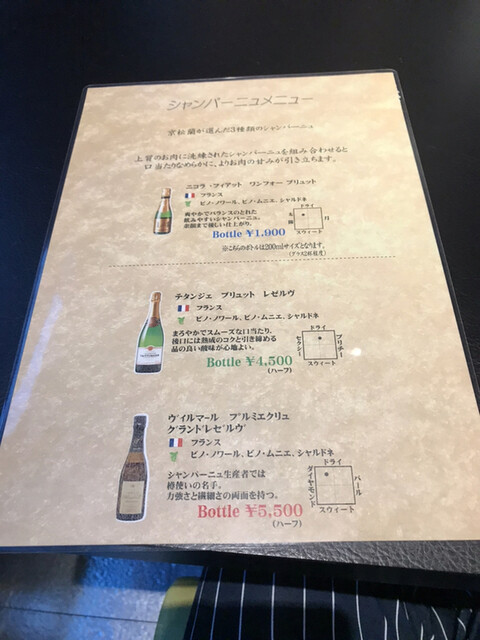 シャンパーニュメニュー
京松蘭が選んだ3種類のシャンパーニュ
上質のお肉に洗練されたシャンパーニュを組み合わせると
口当たりなめらかに、よりお肉の甘みが引き立ちます。
ニコラ・フィアット ワンフォー ブリュット
フランス
ピノ・ノワール、ピノ・ムニエ、シャルドネ
爽やかでバランスのとれた
飲みやすいシャンパーニュ。
余韻まで優しい仕上がり。
ドライ
太陽
月
スウィート
Bottle ¥1,900
※こちらのボトルは200mlサイズとなります。
(グラス2杯程度)
テタンジェ ブリュット レゼルヴ
フランス
ピノ・ノワール、ピノ・ムニエ、シャルドネ
まろやかでスムーズな口当たり。
後口には熟成のコクと引き締める
品の良い酸味が心地よい。
ドライ
セクシー
プリチー
スウィート
Bottle ¥4,500
(ハーフ)
ヴィルマール プルミエクリュ
グランドレゼルヴ
フランス
ピノ・ノワール、ピノ・ムニエ、シャルドネ
シャンパーニュ生産者では
樽使いの名手。
力強さと繊細さの両面を持つ。
ドライ
ダイヤモンド
パール
スウィート
Bottle ¥5,500
(ハーフ)